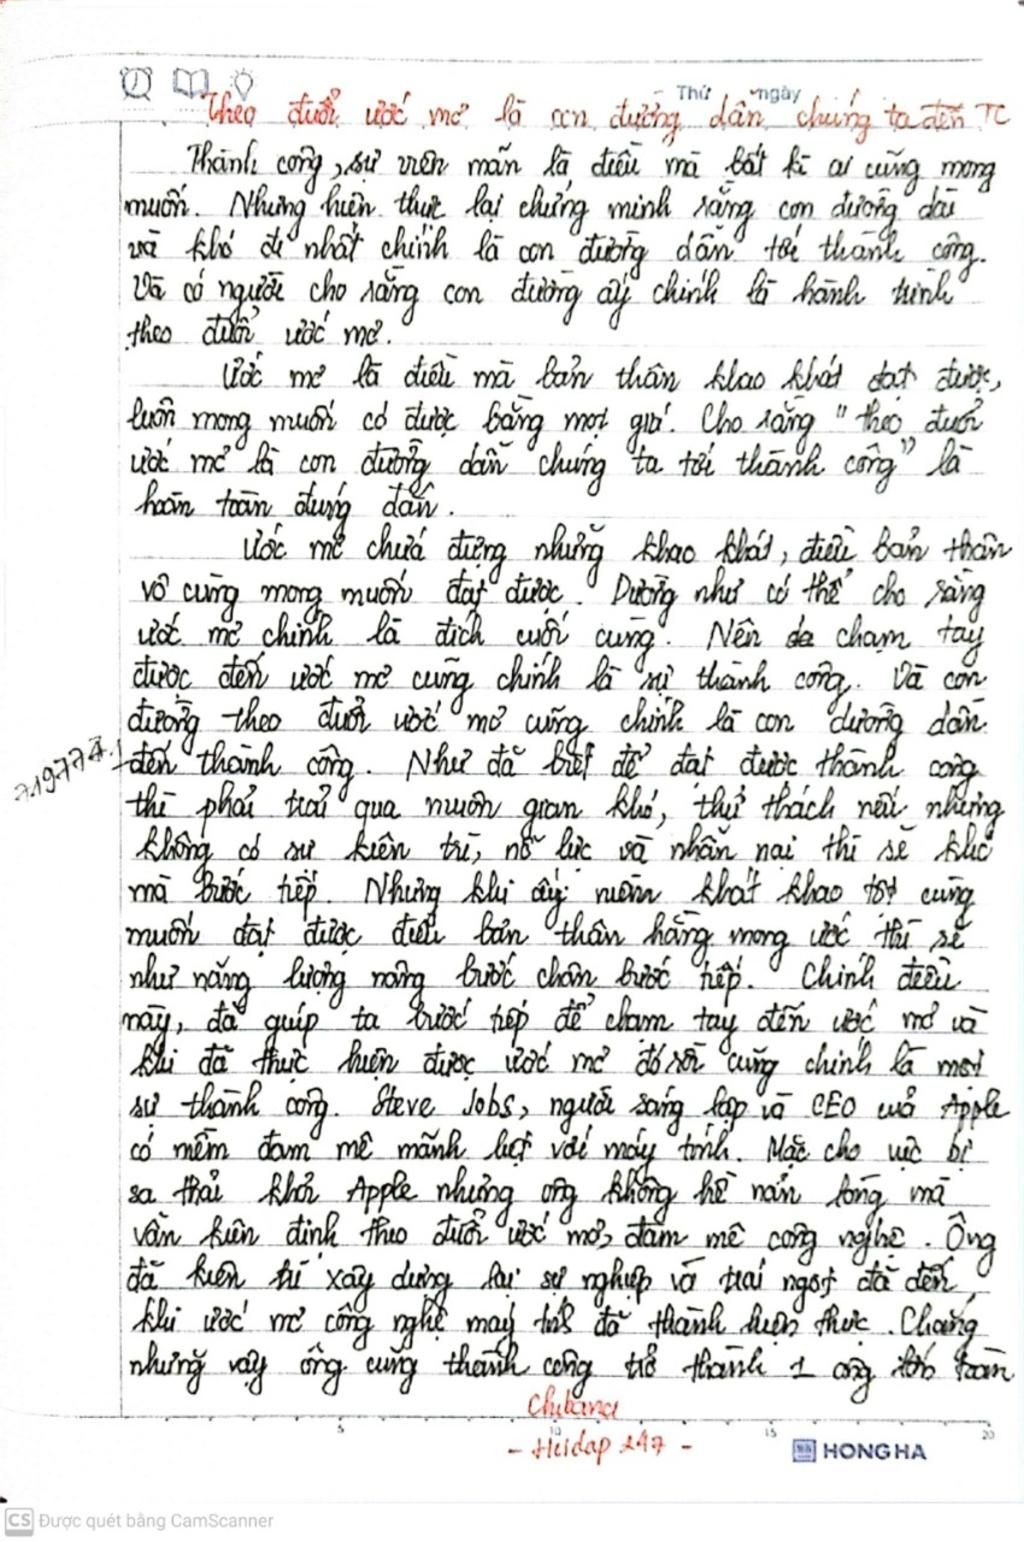 Thứ ngày
Theo đuổi ước mơ là con đường dẫn chúng ta đến TC
Thành công, sự viên mãn là điều mà bất kì ai cũng mong
muốn. Nhưng hiện thực lại chứng minh rằng con đường dài
và khó đi nhất chính là con đường dẫn tới thành công.
Và có người cho rằng con đường ấy chính là hành trình
theo đuổi ước mơ.
Ước mơ là điều mà bản thân khao khát đạt được,
luôn mong muốn có được bằng mọi giá. Cho rằng "theo đuổi
ước mơ là con đường dẫn chúng ta tới thành công" là
hoàn toàn đúng đắn.
Ước mơ chứa đựng những khao khát, điều bản thân
vô cùng mong muốn đạt được. Dường như có thể cho rằng
ước mơ chính là đích cuối cùng. Nên chạm tay
được đến ước mơ cũng chính là sự thành công. Và con
đường theo đuổi ước mơ cũng chính là con đường dẫn
đến thành công. Như đã biết để đạt được thành công
thì phải trải qua muôn gian khó, thử thách nếu nhưng
không có sự kiên trì, nỗ lực và nhẫn nại thì sẽ khó
mà bước tiếp. Nhưng khi ấy niềm khát khao tột cùng
muốn đạt được điều bản thân hằng mong ước thì sẽ
như năng lượng nâng bước chân bước tiếp. Chính điều
này, đã giúp ta bước tiếp để chạm tay đến ước mơ và
khi đã thực hiện được ước mơ đó rồi cũng chính là một
sự thành công. Steve Jobs, người sáng lập và CEO của Apple
có niềm đam mê mãnh liệt với máy tính. Mặc cho việc bị
sa thải khỏi Apple nhưng ông không hề nản lòng mà
vẫn kiên định theo đuổi ước mơ, đam mê công nghệ. Ông
đã kiên trì xây dựng lại sự nghiệp và trái ngọt đã đến,
khi ước mơ công nghệ máy tính đã thành hiện thực. Chẳng
những vậy ông cũng thành công trở thành 1 ông lớn toàn
Chibana
- Heidap 247 -
5 10 15 20
HONG HA
CS Được quét bằng CamScanner